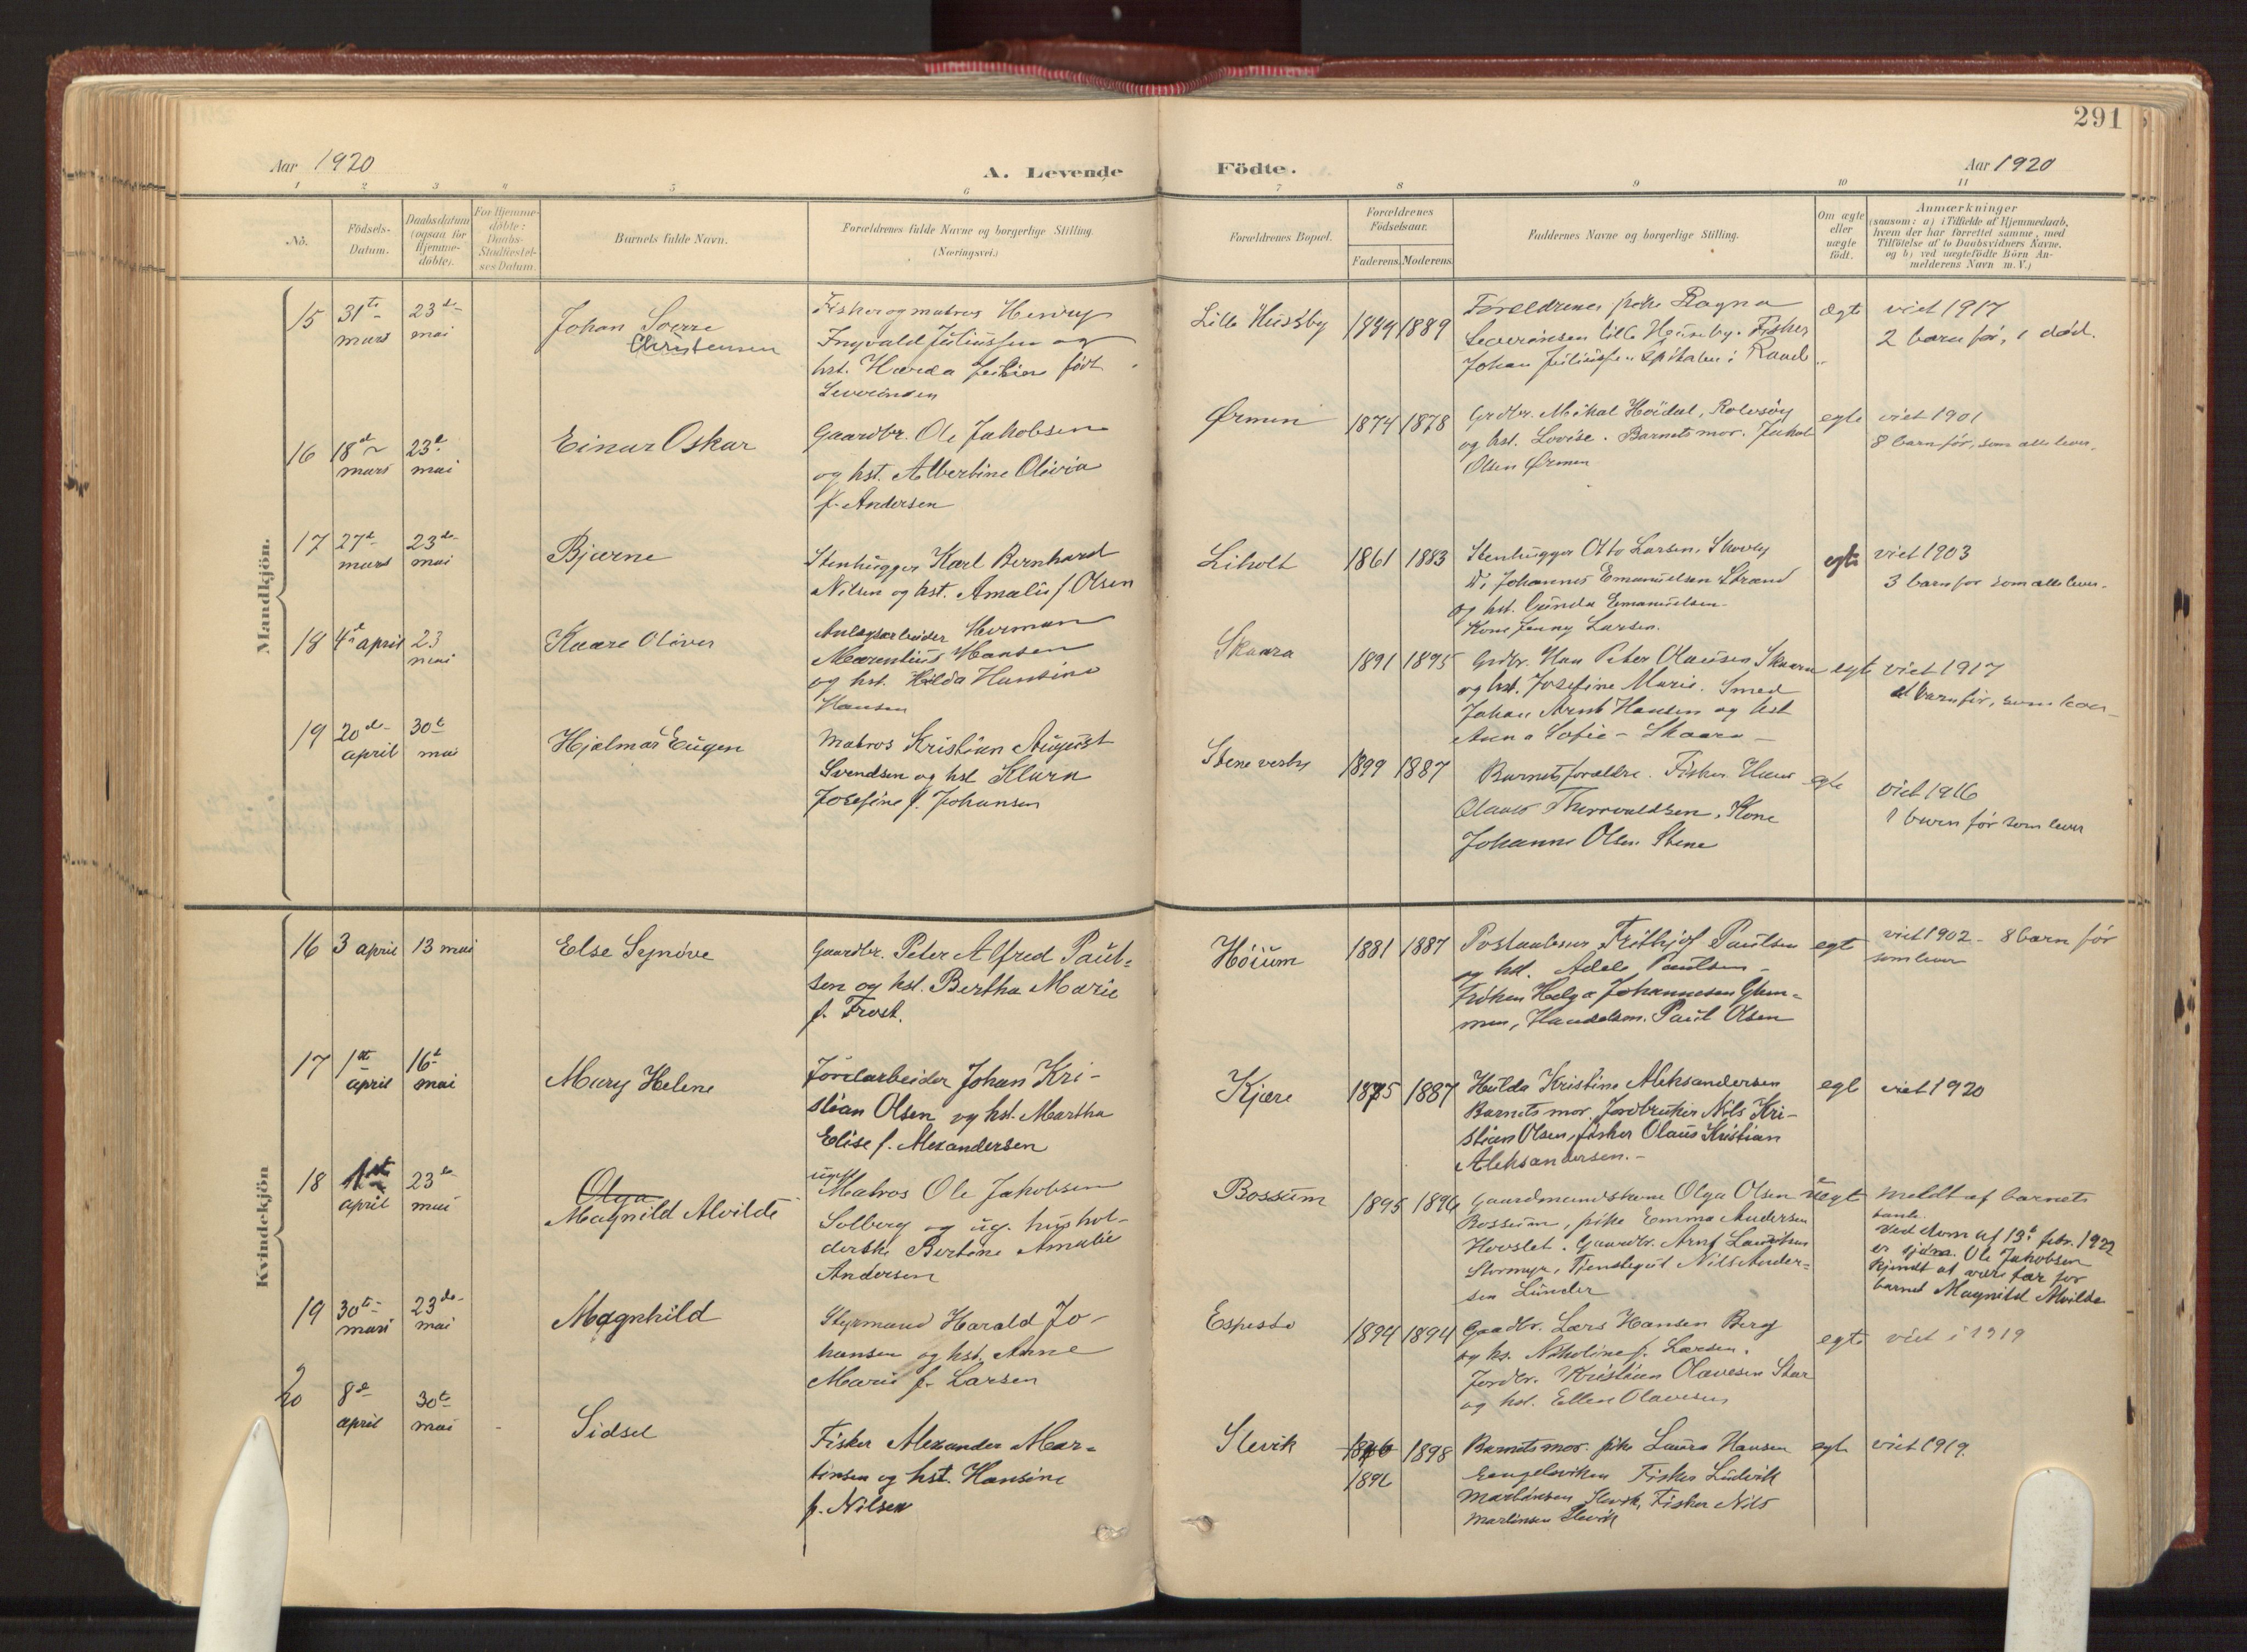 291
Aar 1920
A. Levende
Födte.
Aar 1920
1 2 3 4 5 6 7 8 9 10 11
No.
Födsels-
Datum.
Daabsdatum
(ogsaa for
Hjemme-
döbte).
For Hjemme-
döbte:
Daabs-
Stadfæstel-
ses Datum.
Barnets fulde Navn.
Forældrenes fulde Navne og borgerlige Stilling.
(Næringsvei.)
Forældrenes Bopæl.
Forældrenes
Födselsaar.
Faderens. Moderens.
Faddernes Navne og borgerlige Stilling.
Om ægte
eller
uægte
födt.
Anmærkninger
(saasom: a) i Tilfælde af Hjemmedaab,
hvem der har forrettet samme, med
Tilföielse af to Daabsvidners Navne,
og b) ved uægtefödte Börn An-
melderens Navn m. V.)
Mandkjön.
15
31te
mars
23de
mai
Johan Sverre
Christensen
Fisker og matros Henry
Ingvald Juliussen og
hst. Harda født
Severinsen
Lille Huseby
1884 1889
Foreldrenes pike Ragna
Severinsen lille Huseby. Fisker
Johan
ægte
viet 1917
2 barn før, 1 død.
16
18de
mars
23de
mai
Einar Oskar
Gaardbr. Ole Jakobsen
og hst. Albertine Olivia
f. Andersen
Ørmen
1874 1878
Grdbr. Mikal Høidal, Rolvsøy
og hst. Lovise. Barnets mor. Jakob
Olsen Ørmen
egte
viet 1901
8 barn før, som alle lever.
17
27de
mars
23de
mai
Bjarne
Stenhugger Karl Bernhard
Nilsen og hst. Amalie f. Olsen
Liholt
1861 1883
Stenhugger Otto Larsen,
Johannes Emanuelsen Strand
og hst. Gunda Emanuelsen.
Kone Jenny Larsen.
egte
viet 1903
3 barn før som alle lever.
18
4de april
23
mai
Kaare Oliver
Anlegsarbeider Herman
Marentius Hansen
og hst. Hilda Hansine
Hansen
Skaara
1891 1895
Grdbr. Han Peter Olausen Skaara
og hst. Josefine Marie. Smed
Johan Arnt Hansen og hst
Anna Sofie – Skaara –
egte
viet 1917
et barn før, som lever
19
20de
april
30te
mai
Hjalmar Eugen
Matros Kristian August
Svendsen og hst Klara
Josefine f. Johansen
Stene vestby
1899 1887
Barnets forældre. Fisker Hans
Olaus Thorvaldsen, Kone
Johanne Olsen Stene
egte
viet 1916
1 barn før som lever
Kvindekjön
16
3 april
13 mai
Else Synøve
Gaardbr. Peter Alfred Paul=
sen og hst. Bertha Marie
f. Frost.
Høium
1881 1887
Postaabner Frithjof Paulsen
og hst. Adele Paulsen –
Frøken Helga Johannesen Glem=
men, Handelsm. Paul Olsen
egte
viet 1902 – 8 barn før
som lever
17
1ste
april
16de
mai
Mary Helene
Jordarbeider Johan Kri-
stian Olsen og hst. Martha
Elise f. Alexandersen
Kjære
1875 1887
Hulda Kristine Aleksandersen
Barnets mor, Jordbruker Nils Kri-
stian Olsen, fisker Olaus Kristian
Aleksandersen.-
egte
viet 1920
18
1ste
april
23de
mai
Olga
Magnild Alvilde
ugift
Matros Ole Jakobsen
Solberg og ug. hushol-
derske Bertine Amalie
Andersen
Bossum
1895 1896
Gaardmandskone Olga Olsen
Bossum, pike Emma Andersen
Hovslet. Gaardbr. Arnt
Stormyr, Tjenstegut Nils Ander=
sen Lunder
uegte
meldt af barnets
tante.
Ved dom af 13de febr. 1922
er sjøm. Ole Jakobsen
kjendt at være far for
barnet Magnild Alvilde
19
30te
mars
23de
mai
Magnhild
Styrmand Harald Jo-
hansen og hst. Anne
Marie f. Larsen
Espestø
1894 1894
Gaadbr. Lars Hansen Berg
og hs. Nikoline f. Larsen.
Jordbr. Kristian Olavesen
og hst. Ellen Olavesen
egte
viet i 1919
20
8de
april
30te
mai
Sidsel
Fisker Alexander Mar=
tinsen og hst. Hansine
f. Nilsen
Slevik
1896 1898
Barnets mor. pike Laura Hansen
Engelsviken Fisker Ludvik
Martinsen Slevik, Fisker Nils
Martinsen Slevik
egte
viet 1919.